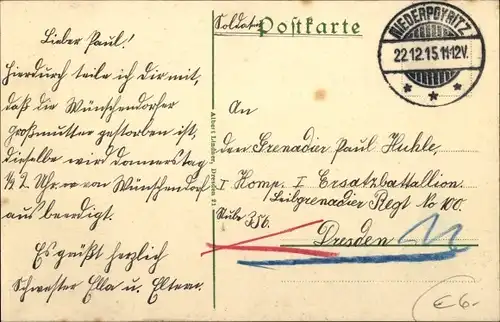 Soldaten Postkarte
NIEDERPOYRITZ
22.12.15.11-12V.
Lieber Paul!
Hierdurch teile ich Dir mit,
daß die Wünschendorfer
Großmutter gestorben ist,
dieselbe wird Donnerstag
1/2 2 Uhr von Wünschendorf
aus beerdigt.
Es grüßt herzlich
Schwester Ella u. Eltern.
Albert Lindner, Dresden 21
An
den Grenadier Paul Huhle,
I Komp. I Ersatzbattallion
Leibgrenadier Regt No 100.
Stube 356.
Dresden
€6-